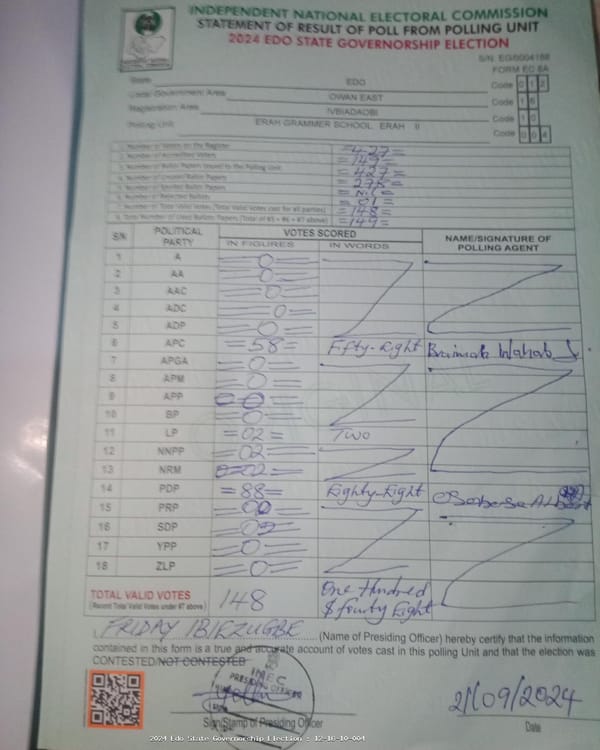 INDEPENDENT NATIONAL ELECTORAL COMMISSION
STATEMENT OF RESULT OF POLL FROM POLLING UNIT
2024 EDO STATE GOVERNORSHIP ELECTION
S/N: EG/0004168
FORM EC 8A
State EDO Code 0 1 2
Local Government Area OWAN EAST Code 1 6
Registration Area IVBIADAOBI Code 1 0
Polling Unit ERAH GRAMMER SCHOOL, ERAH II Code 0 0 4
1. Number of Voters on the Register =427=
2. Number of Accredited Voters =149=
3. Number of Ballot Papers Issued to the Polling Unit =427=
4. Number of Unused Ballot Papers
5. Number of Spoiled Ballot Papers =NIL=
6. Number of Rejected Ballots =01=
7. Number of Total Valid Votes (Total Valid Votes cast for all parties) =148=
8. Total Number of Used Ballot Papers (Total of #5 + #6 + #7 above) =149=
S/N POLITICAL PARTY VOTES SCORED NAME/SIGNATURE OF POLLING AGENT
IN FIGURES IN WORDS
1 A =0=
2 AA =0=
3 AAC =0=
4 ADC =0=
5 ADP =0=
6 APC =58= Fifty-Eight Braimah Wahab
7 APGA =0=
8 APM =0=
9 APP
10 BP =0=
11 LP =02= Two
12 NNPP
13 NRM
14 PDP =88= Eighty-Eight
15 PRP
16 SDP
17 YPP =0=
18 ZLP =0=
TOTAL VALID VOTES 148 One Hundred & fourty Eight
(Record Total Valid Votes under #7 above)
I, FRIDAY IBIEZUGBE (Name of Presiding Officer) hereby certify that the information
contained in this form is a true and accurate account of votes cast in this polling Unit and that the election was
CONTESTED/NOT CONTESTED
INEC
PRESIDING OFFICER
21/09/2024
Sign/Stamp of Presiding Officer Date
2024 Edo State Governorship Election : 12-16-10-004